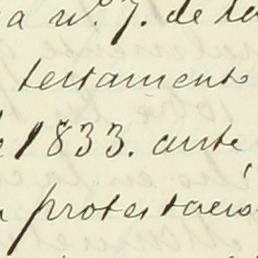 a n.º 7. de la
testamento
1833. ante
protestacio